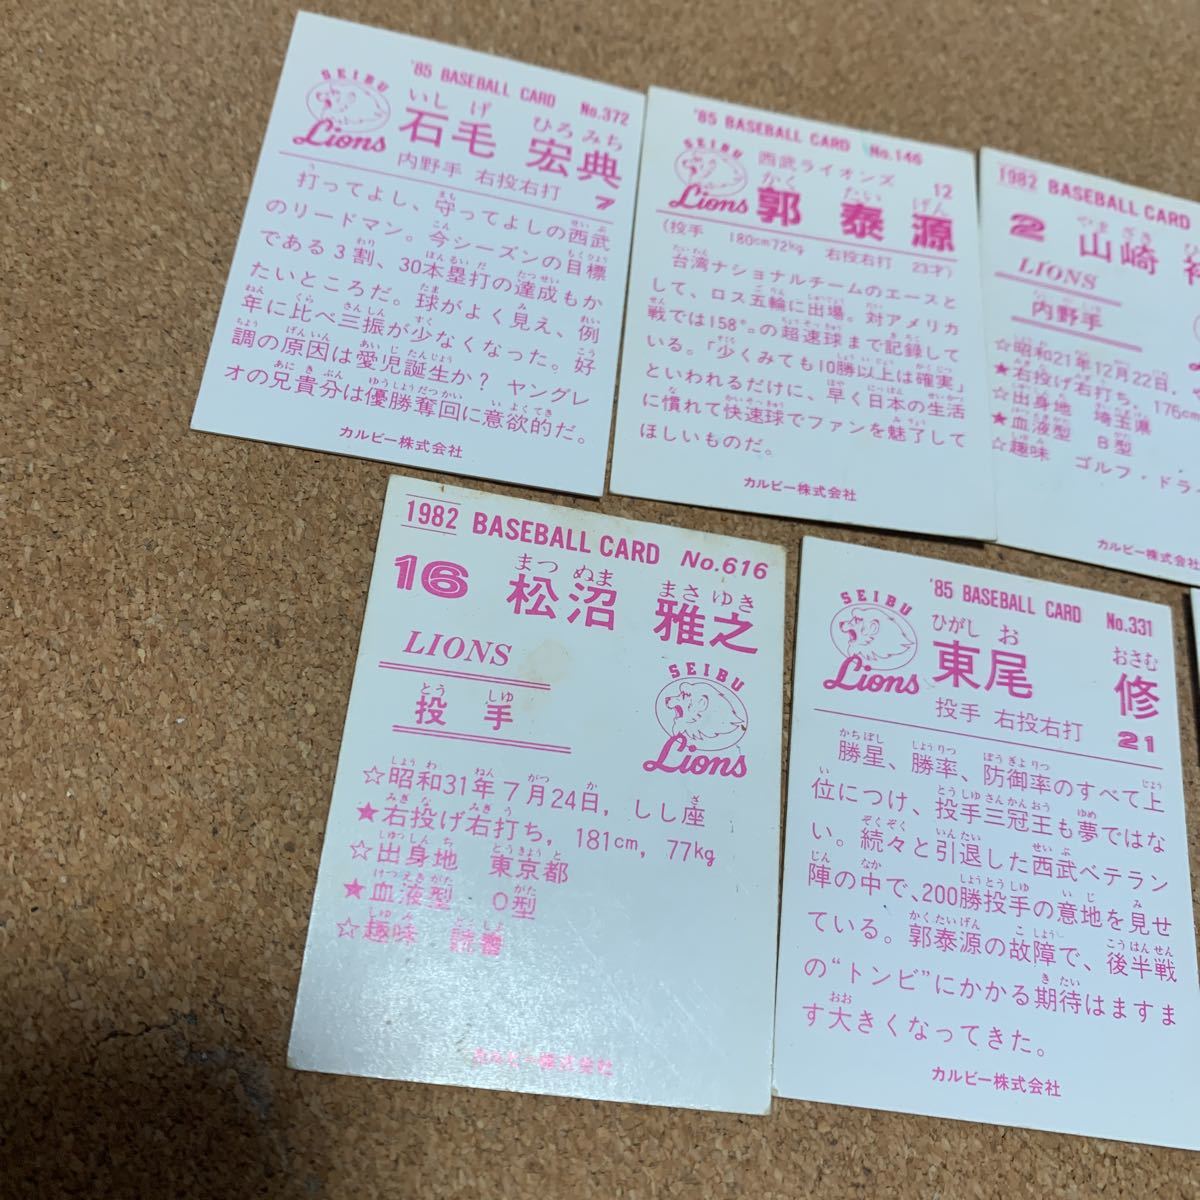 '85 BASEBALL CARD No.372
SEIBU
Lions
いし げ ひろ みち
石毛 宏典
内野手 右投右打 7
打ってよし、守ってよしの西武
のリードマン。今シーズンの目標
である3割、30本塁打の達成もか
たいところだ。球がよく見え、例
年に比べ三振が少なくなった。好
調の原因は愛児誕生か? ヤングレ
オの兄貴分は優勝奪回に意欲的だ。
カルビー株式会社
'85 BASEBALL CARD No.146
SEIBU
Lions
西武ライオンズ 12
かく たい げん
郭 泰源
(投手 180cm72kg 右投右打 23才)
台湾ナショナルチームのエースと
して、ロス五輪に出場。対アメリカ
戦では158㌔の超速球まで記録して
いる。「少くみても10勝以上は確実」
といわれるだけに、早く日本の生活
に慣れて快速球でファンを魅了して
ほしいものだ。
カルビー株式会社
1982 BASEBALL CARD
やま ざき
2 山崎
LIONS
内野手
☆昭和21年12月22日,
★右投げ右打ち, 176cm
☆出身地 埼玉県
★血液型 B型
☆趣味 ゴルフ・ドラ
カルビー株式会社
1982 BASEBALL CARD No.616
まつ ぬま まさ ゆき
16 松沼 雅之
LIONS
とう しゆ
投手
SEIBU
Lions
☆昭和31年7月24日, しし座
★右投げ右打ち, 181cm, 77kg
☆出身地 東京都
★血液型 O型
☆趣味 読書
カルビー株式会社
'85 BASEBALL CARD No.331
SEIBU
Lions
ひがし お おさむ
東尾 修
投手 右投右打 21
勝星、勝率、防御率のすべて上
位につけ、投手三冠王も夢ではな
い。続々と引退した西武ベテラン
陣の中で、200勝投手の意地を見せ
ている。郭泰源の故障で、後半戦
の“トンビ”にかかる期待はますま
す大きくなってきた。
カルビー株式会社